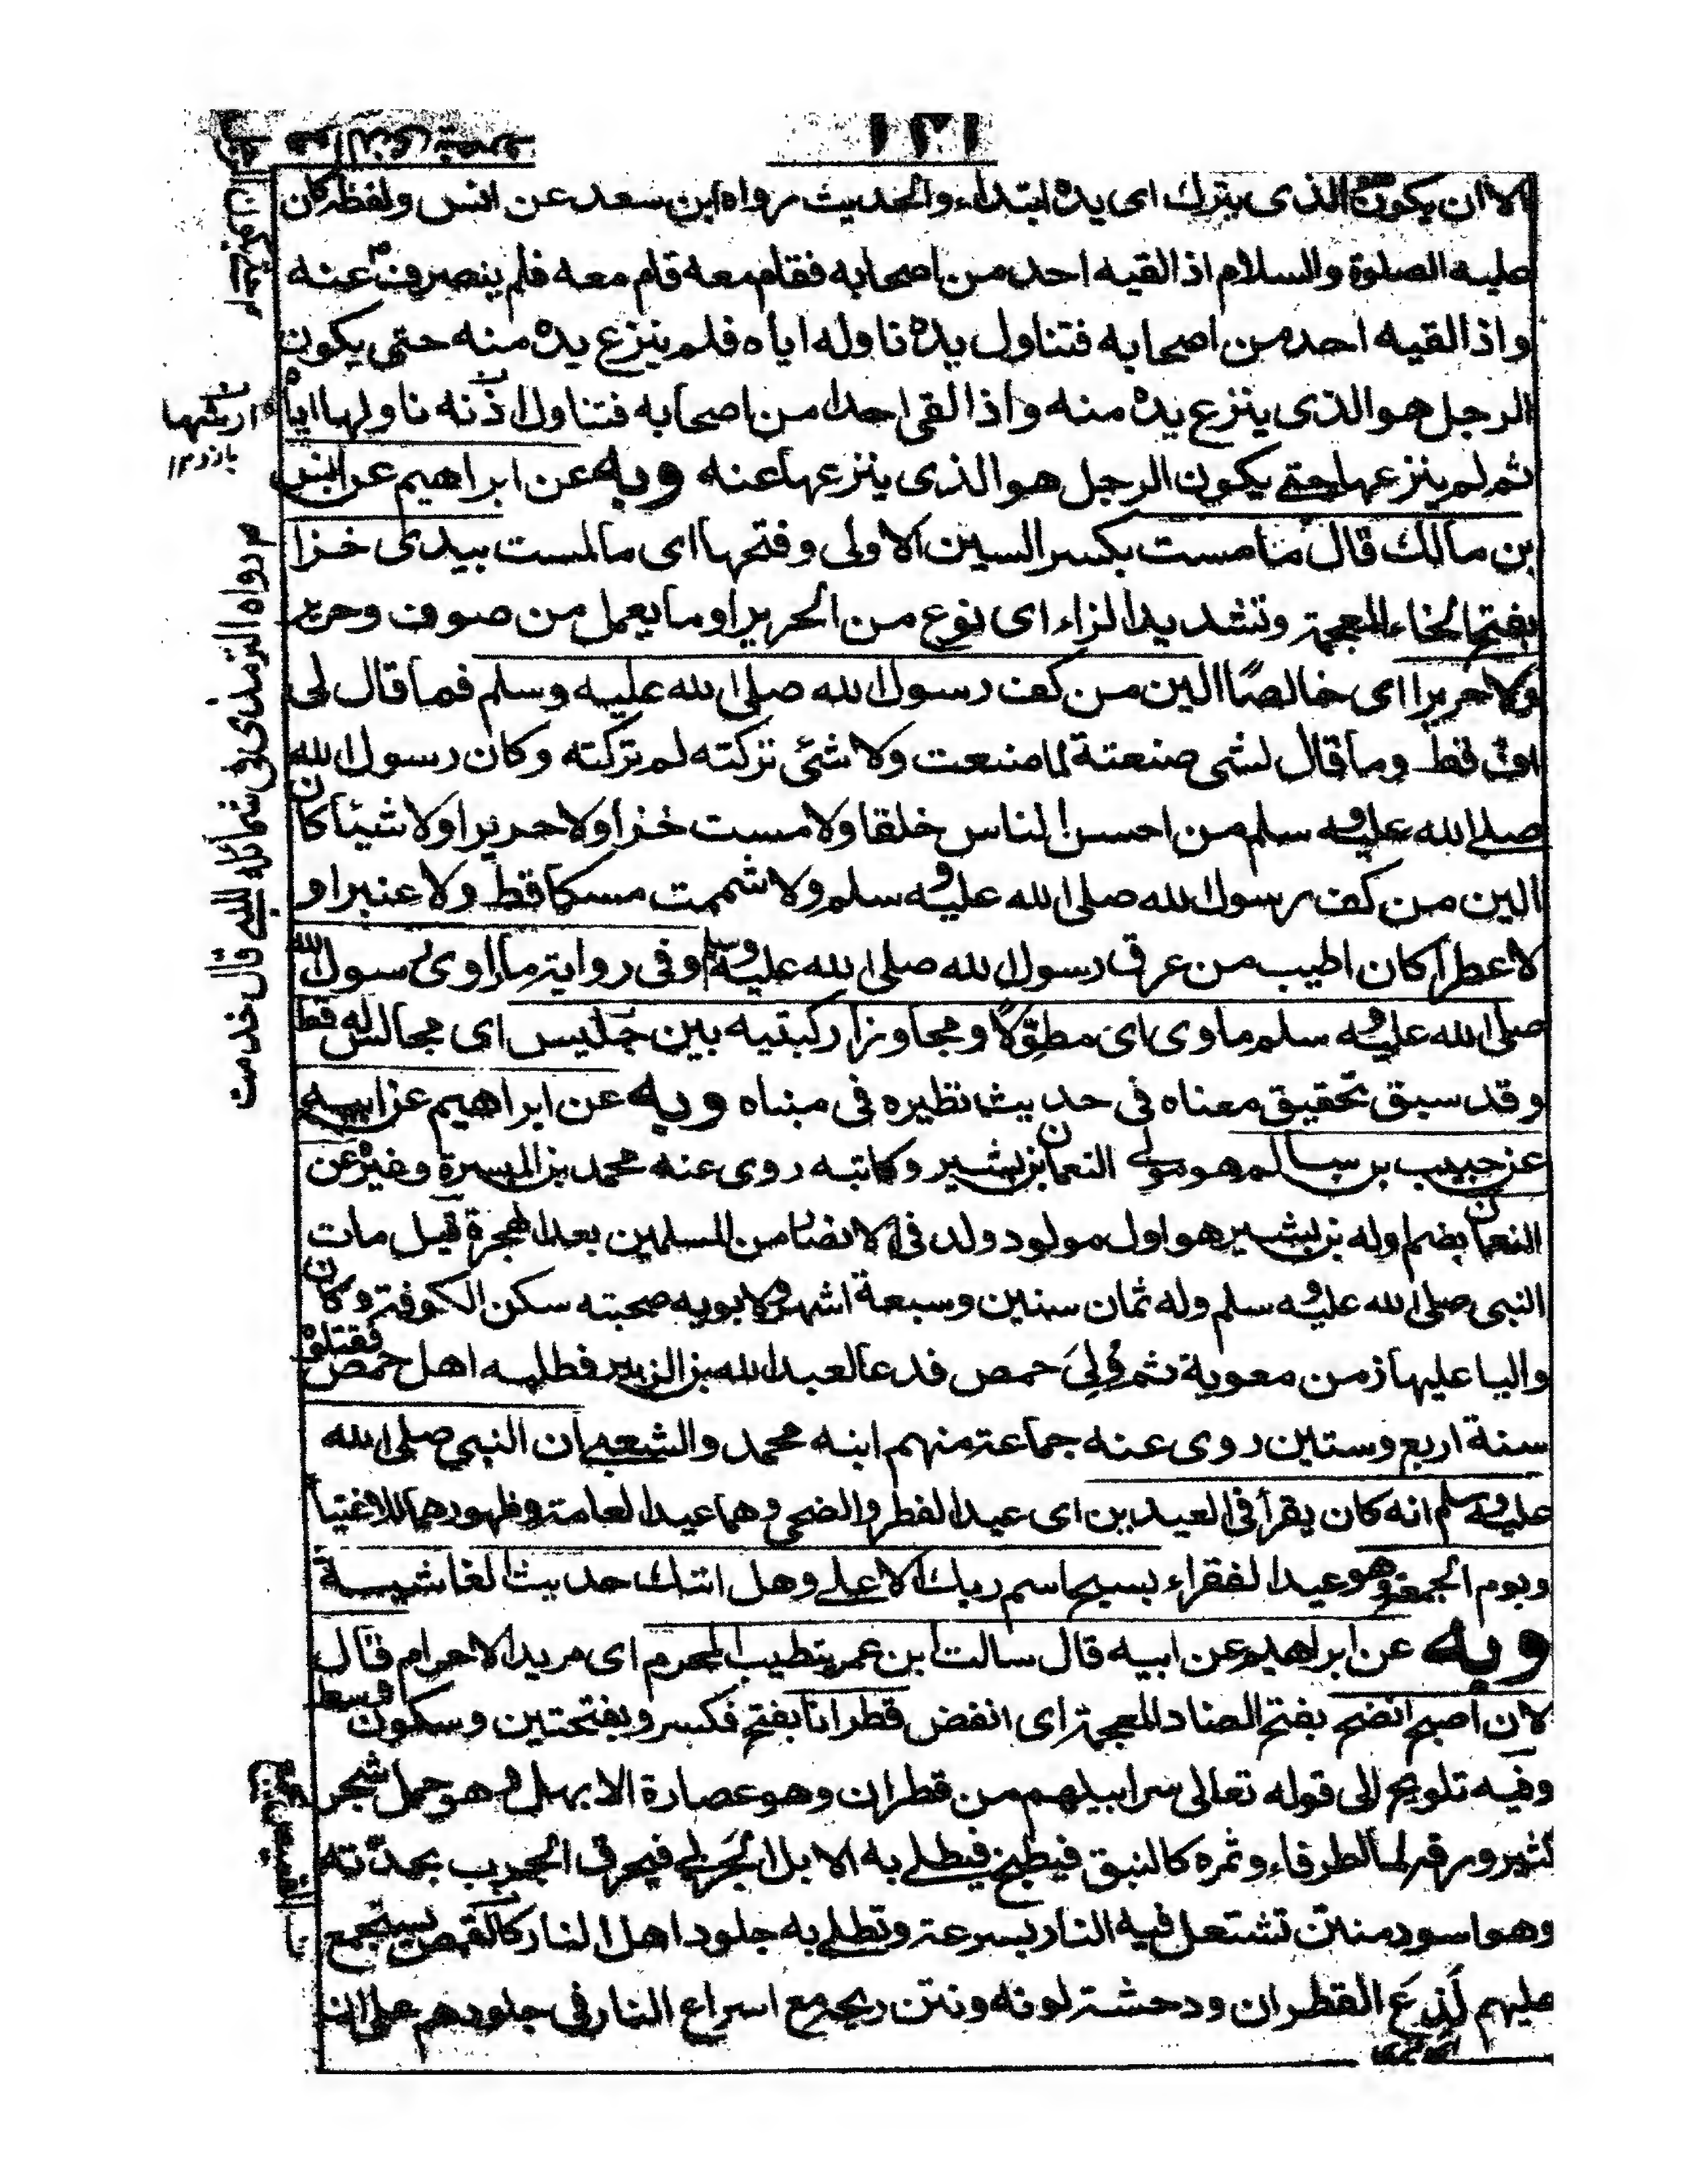 ١٣١
الا ان يكون الذى يترك اى يده ابتداء والحديث رواه ابن سعد عن انس ولفظه كان
عليه الصلوة والسلام اذا لقيه احد من اصحابه فقام معه قام معه فلم ينصرف عنه
واذا لقيه احد من اصحابه فتناول يده ناوله اياه فلم ينزع يده منه حتى يكون
الرجل هو الذى ينزع يده منه واذا لقى احدا من اصحابه فتناول اذنه ناولها اياه
ثم لم ينزعها حتى يكون الرجل هو الذى ينزعها عنه وبه عن ابراهيم عن انس
بن مالك قال ما مسست بكسر السين الاولى وفتحها اى ما لمست بيدى خزا
بفتح الخاء المعجمة وتشديد الزاء اى نوع من الحرير او ما يعمل من صوف وحرير
ولا حريرا اى خالصًا الين من كف رسول الله صلى الله عليه وسلم فما قال لى
اف قط وما قال لشى صنعته لما صنعت ولا شئى تركته لم تركته وكان رسول الله
صلى الله عليه وسلم من احسن الناس خلقا ولا مست خزا ولا حريرا ولا شيئا كان
الين من كف رسول الله صلى الله عليه وسلم ولا شممت مسكا قط ولا عنبرا و
لا عطرا كان اطيب من عرق رسول الله صلى الله عليه وسلم وفى رواية ما راوى رسول الله
صلى الله عليه وسلم ماوى اى مطوّلا ومجاوزا ركبتيه بين جليس اى مجالس له قط
وقد سبق تحقيق معناه فى حديث نظيره فى مبناه وبه عن ابراهيم عن ابيه
عن حبيب بن سالم هو مولى النعمان بن بشير وكاتبه روى عنه محمد بن المسرة وغيره عن
النعمان بضم اوله بن بشير هو اول مولود ولد فى الانصار من المسلمين بعد الهجرة قيل مات
النبى صلى الله عليه وسلم وله ثمان سنين وسبعة اشهر ولابويه صحبته سكن الكوفة وكان
واليا عليها زمن معوية ثم وُلِىَ حمص فدعا لعبد الله بن الزبير فطلبه اهل حمص فقتلوه
سنة اربع وستين روى عنه جماعة منهم ابنه محمد والشعبى ان النبى صلى الله
عليه وسلم انه كان يقرأ فى العيدين اى عيد الفطر والضحى وهما عيد العامة وظهورهما للاغنيا
ويوم الجمعة وهو عيد الفقراء بسبح اسم ربك الاعلى وهل اتيك حديث الغاشية
وبه عن ابراهيم عن ابيه قال سالت ابن عمر يتطيب المحرم اى مريد الاحرام قال
لان اصبح انضح بفتح الضاد المعجمة اى انفض قطرانا بفتح فكسر وبفتحتين وسكون وسط
وفيه تلويح الى قوله تعالى سرابيلهم من قطران وهو عصارة الابهل وهو حمل شجر
كثير ورقه كالطرفاء وثمره كالنبق فيطبخ فيطلى به الابل الجربى فيحرق الجرب بحدّته
وهو اسود منتن تشتعل فيه النار بسرعة وتطلى به جلود اهل النار كالقمص يستجمع
عليهم لَذعَ القطران ودحشة لونه ونتن ريحه مع اسراع النار فى جلودهم على ان
ارشها
م رواه الترمذى فى شمائله قال خدمت